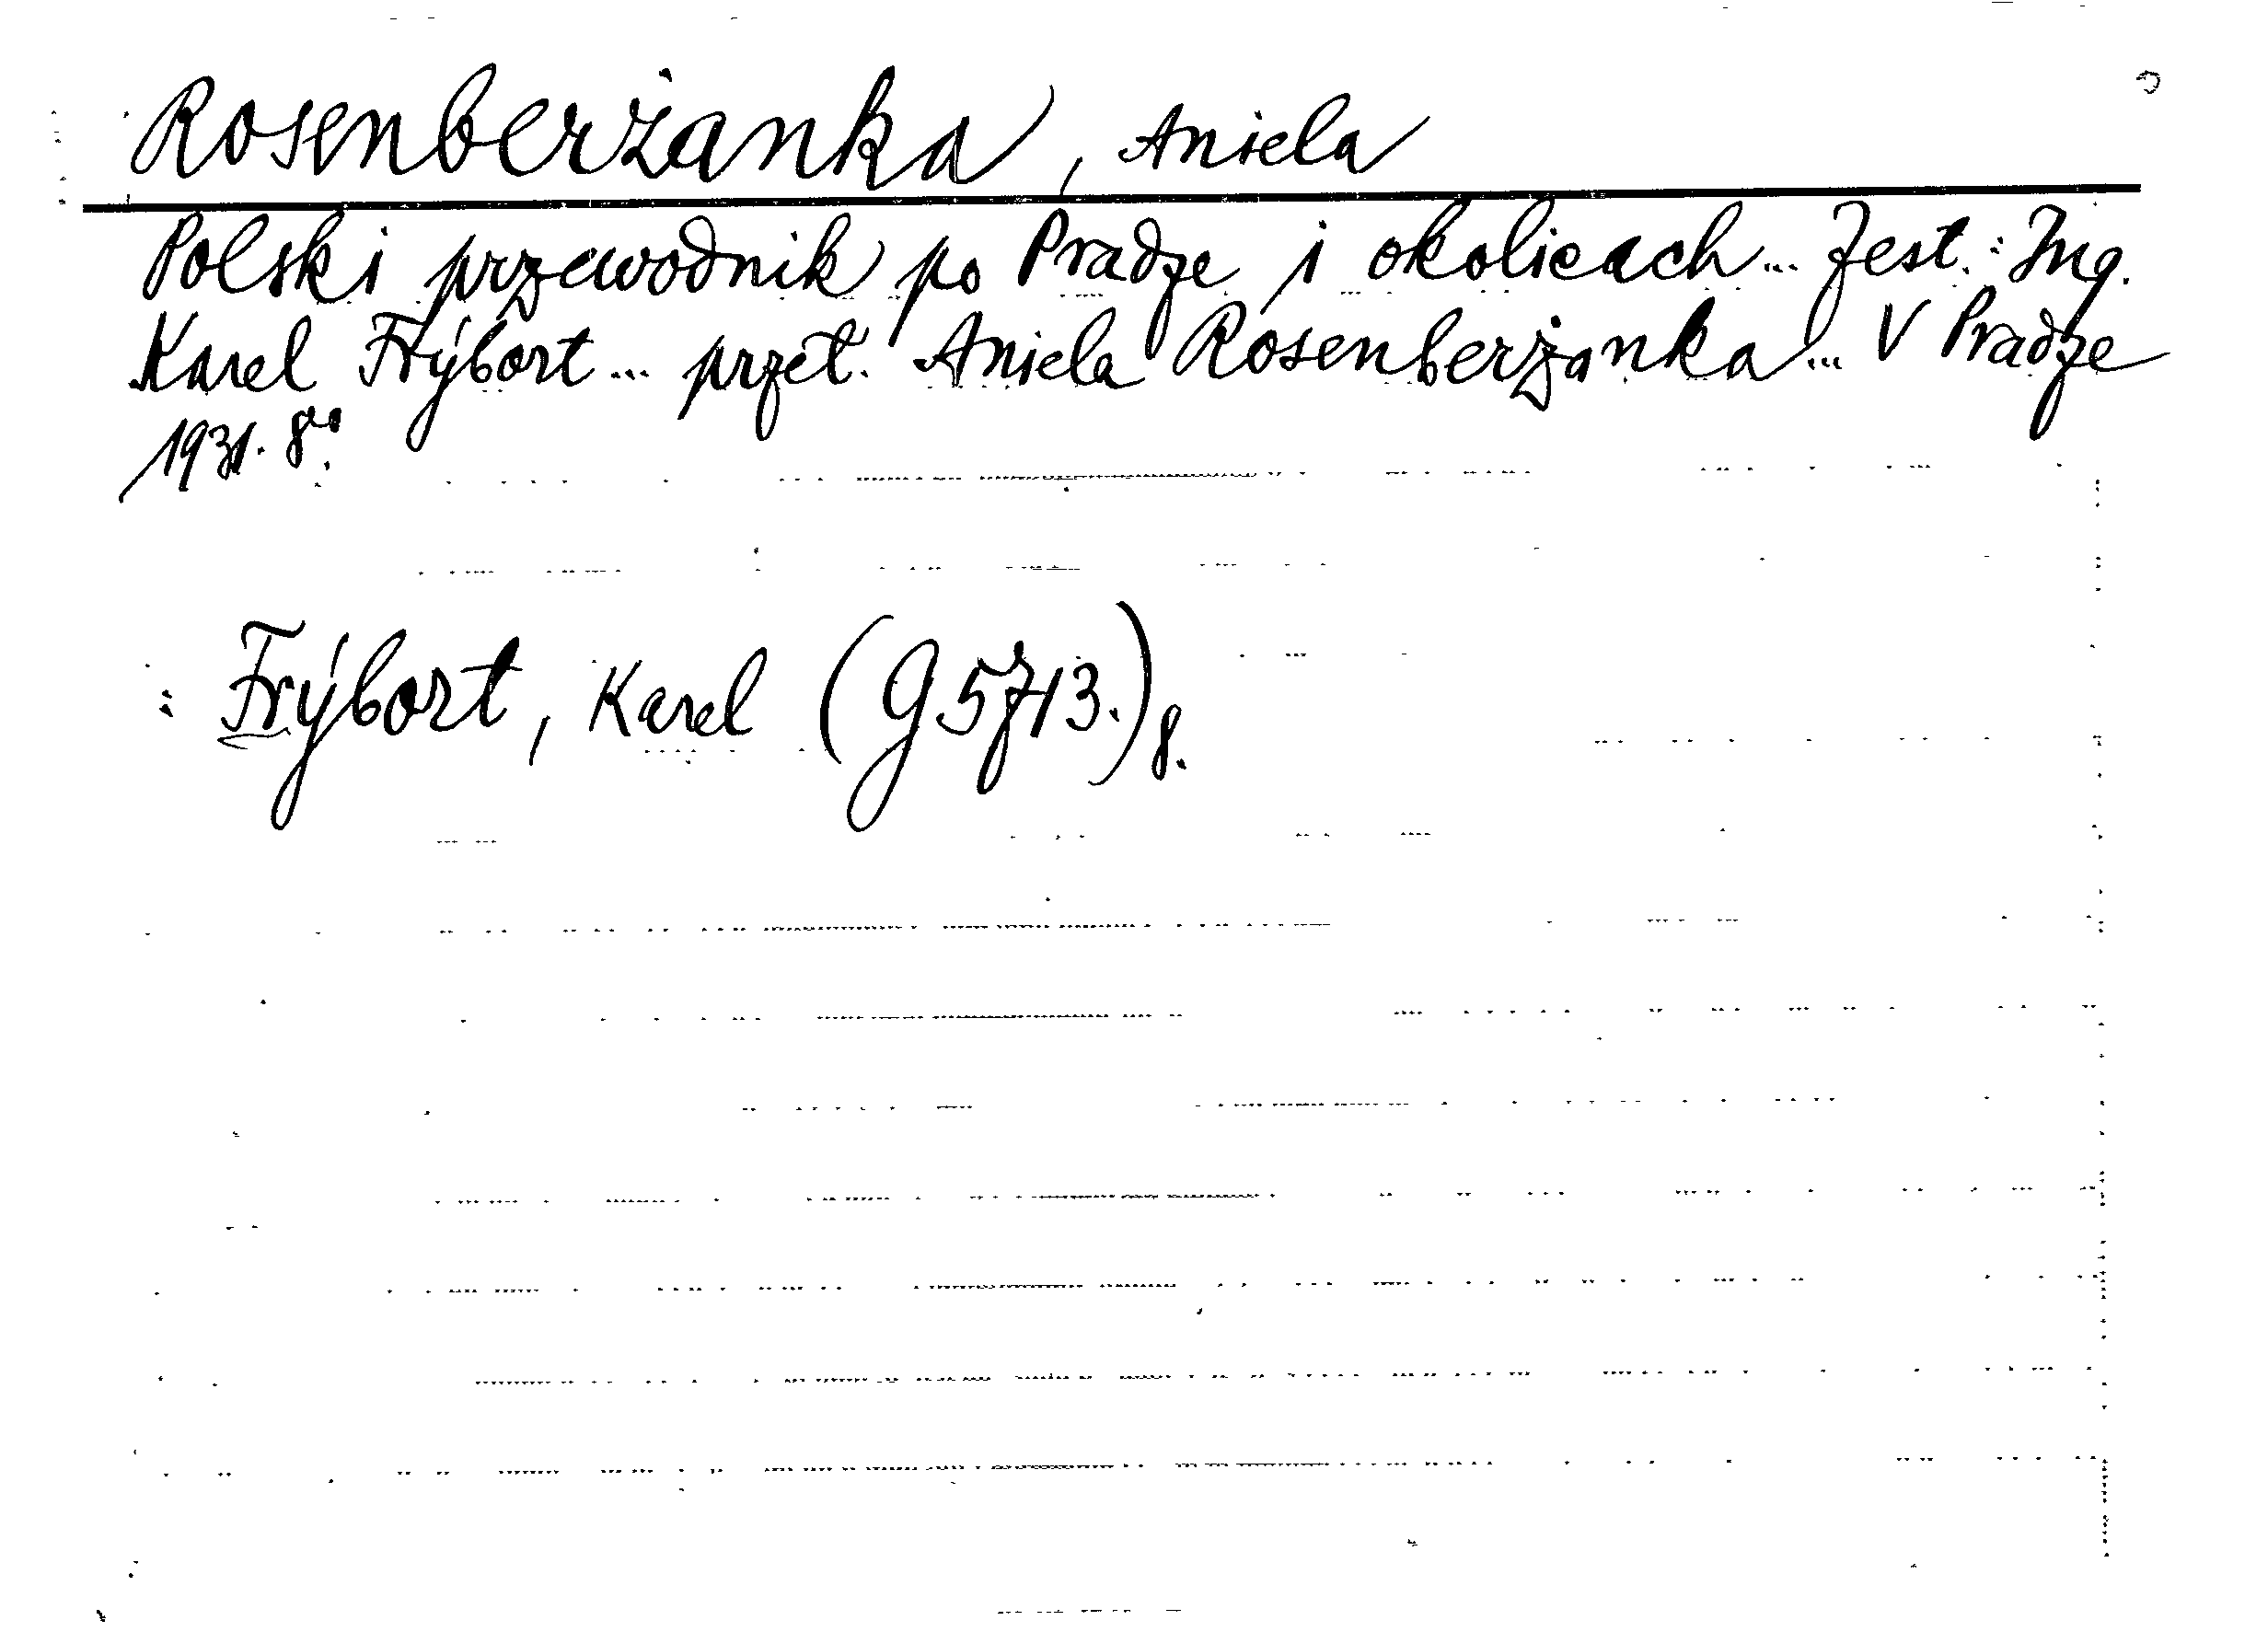 Rosenberżanka, Aniela
Polski przewodnik po Pradze i okolicach... Zest.: Ing.
Karel Frýbort... przeł. Aniela Rosenberżanka... V Pradze
1931. 8°.
: Frýbort, Karel (G 5713.) 8.